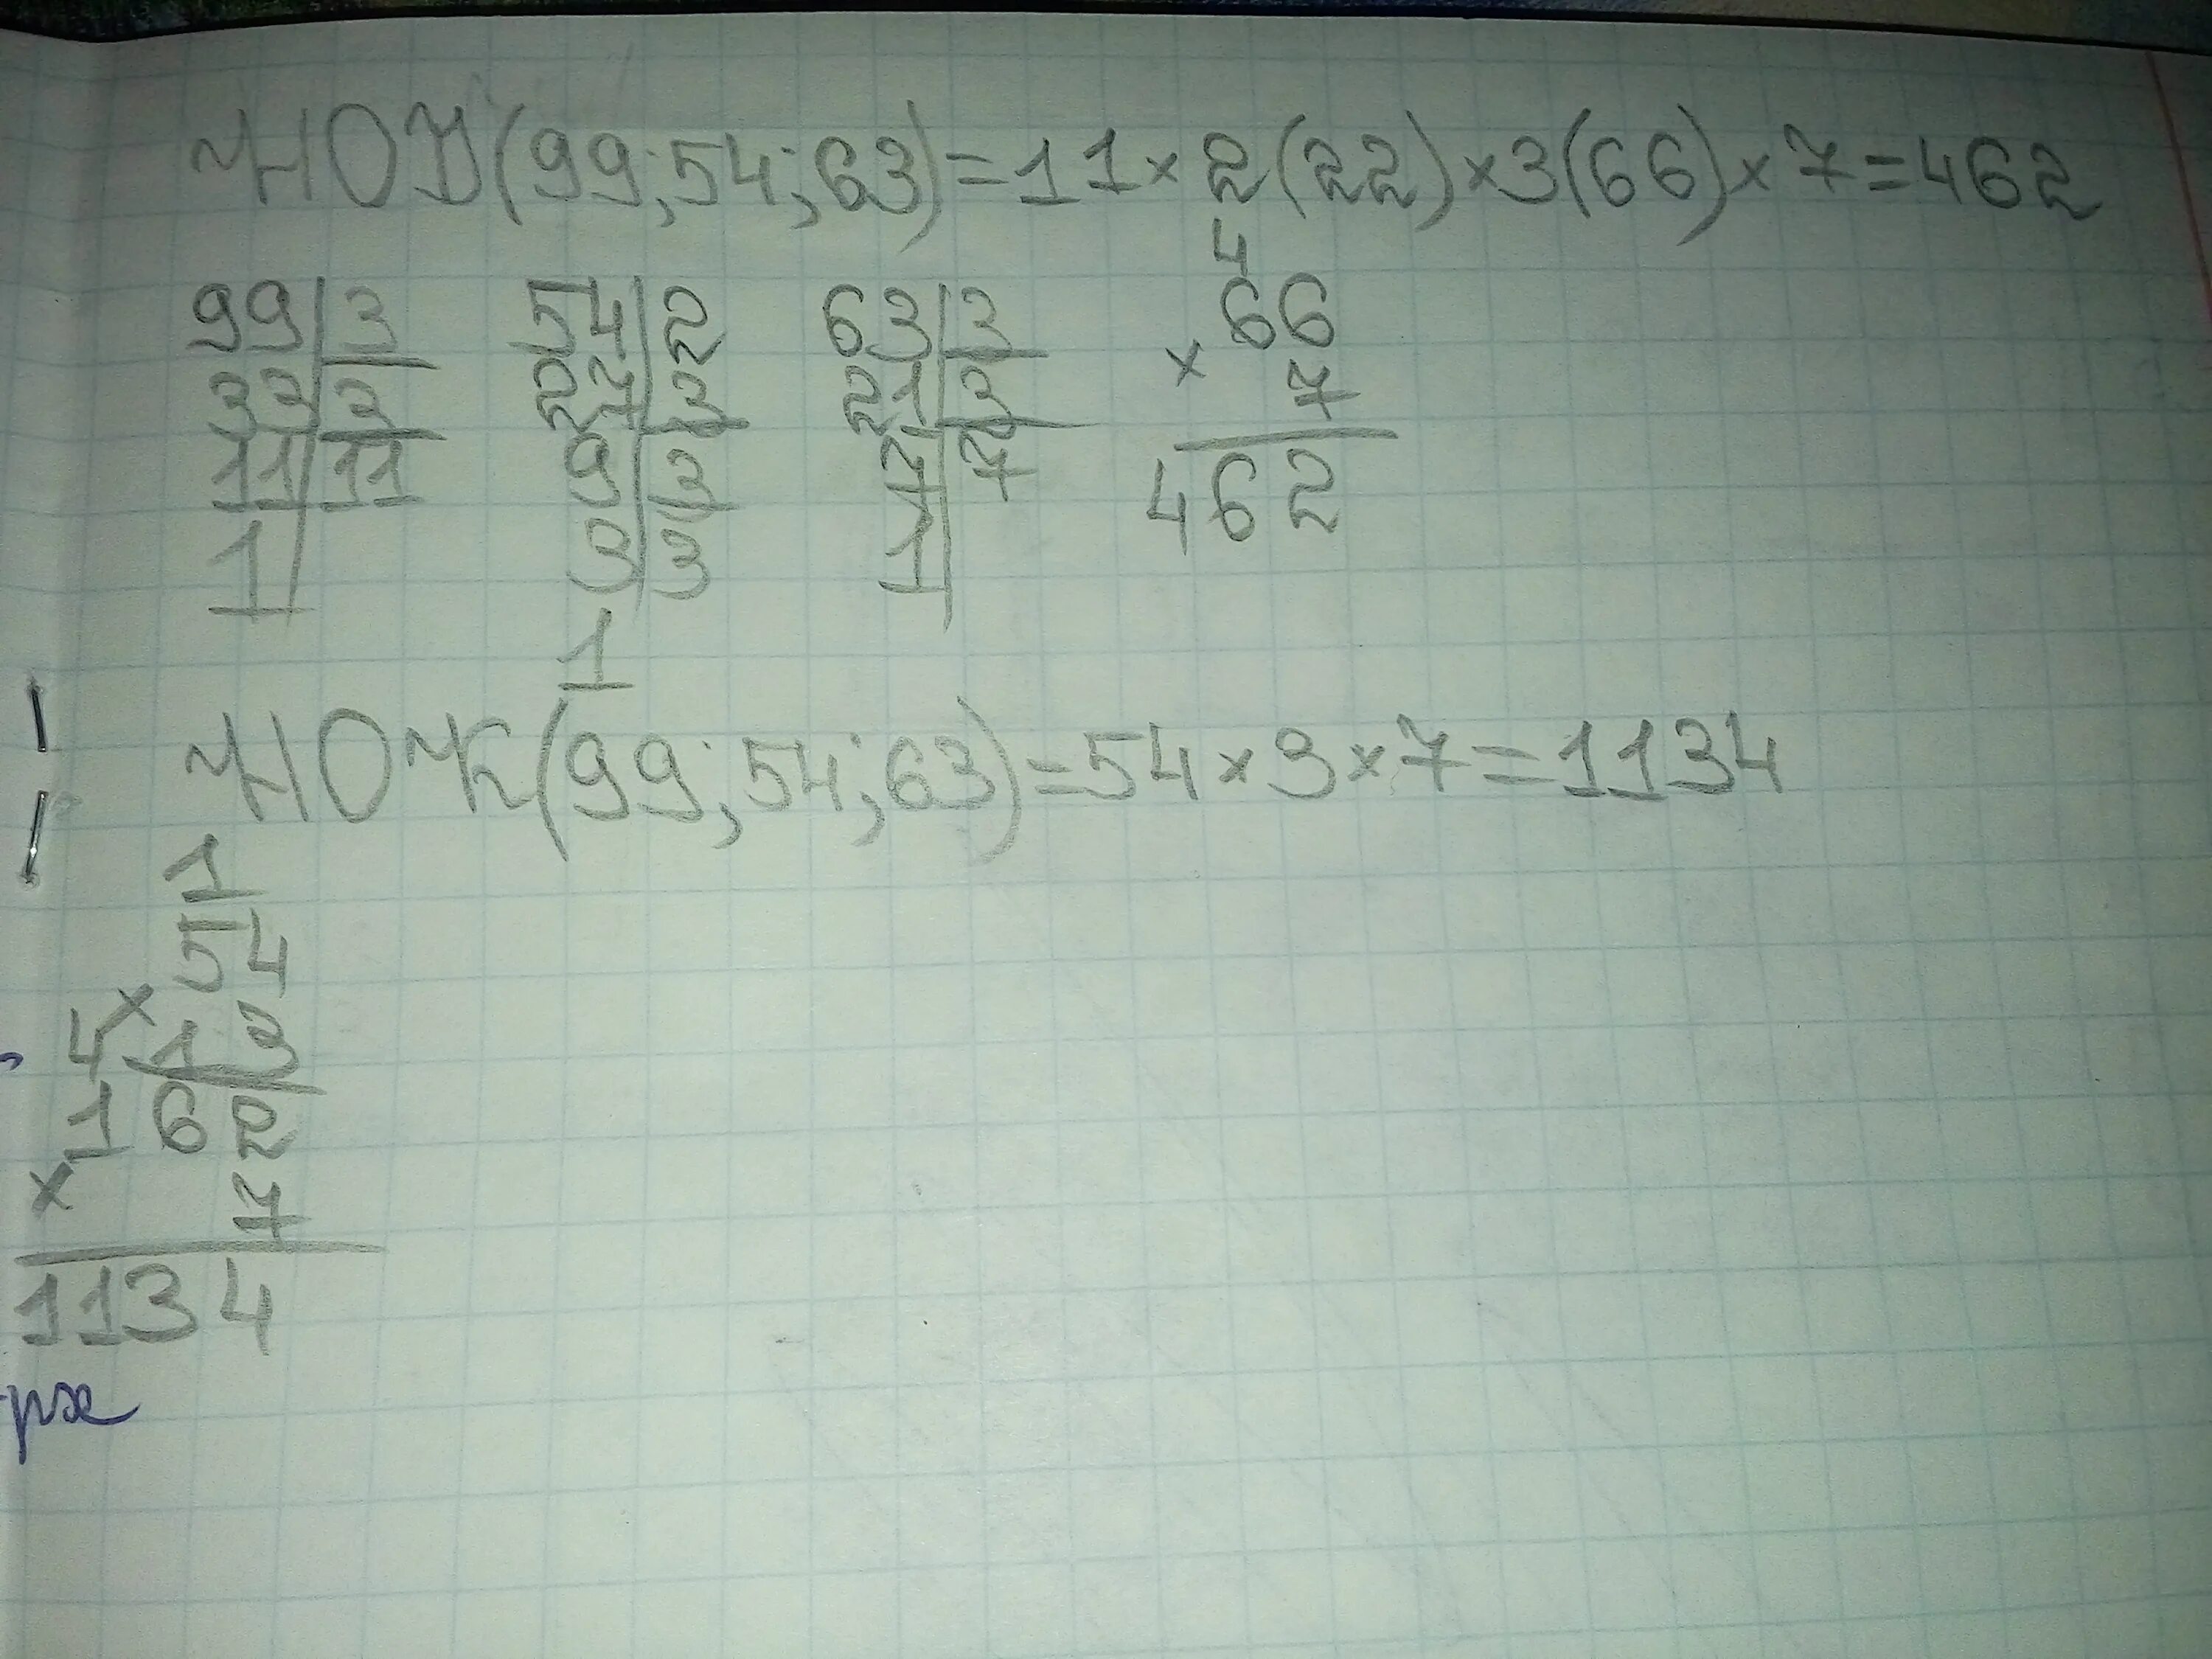 НОД(99;54;63)=11×2(22)×3(66)×7=462
99|3 54|2 63|3 4
33|3 27|3 21|3 66
11|11 9|3 7|7 × 7
1 3|3 1 462
1
НОК(99;54;63)=54×3×7=1134
1
54
×
4 1 3
162
× 7
1134